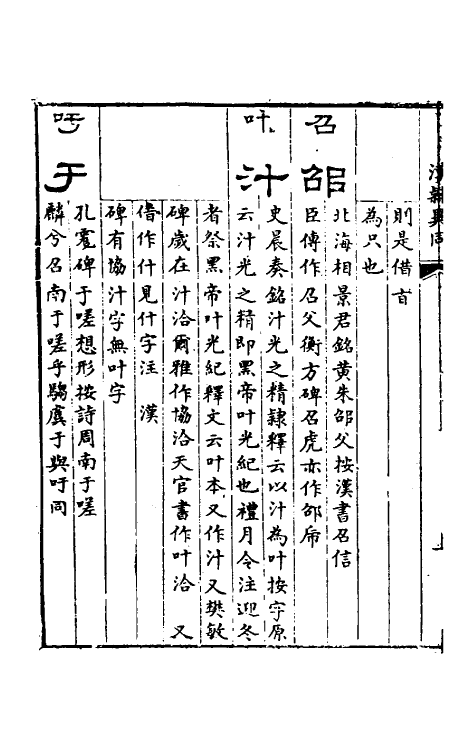 漢隸異同
則是借旨
為只也
召
邵
北海相景君銘黄朱邵父按漢書召信
臣傳作召父衡方碑召虎亦作邵虎
叶
汁
史晨奏銘汁光之精隸釋云以汁為叶按字原
云汁光之精即黑帝叶光紀也禮月令注迎冬
者祭黑帝叶光紀釋文云叶本又作汁又樊敏
碑歲在汁洽爾雅作協洽天官書作叶洽　又
借作什見什字注　漢
碑有協汁字無叶字
吁
于
孔霮碑于嗟想形按詩周南于嗟
麟兮召南于嗟乎騶虞于與吁同